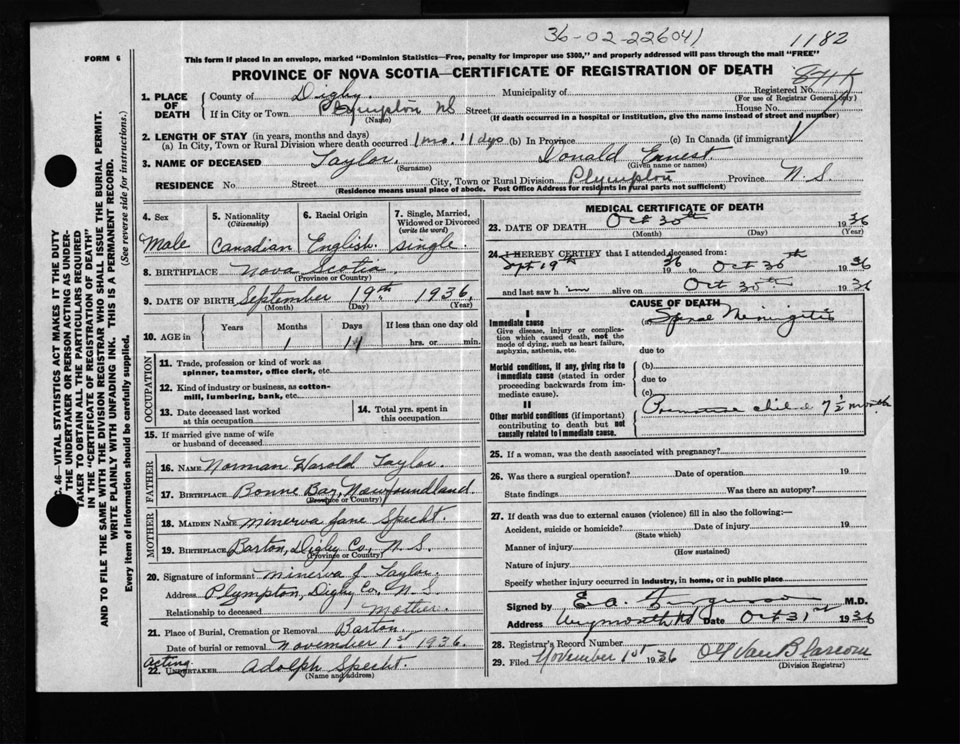 36-02-226041
1182
FORM 6
This form if placed in an envelope, marked "Dominion Statistics—Free, penalty for improper use $300," and properly addressed will pass through the mail "FREE"
PROVINCE OF NOVA SCOTIA—CERTIFICATE OF REGISTRATION OF DEATH
1. PLACE OF DEATH
County of Digby Municipality of Registered No.
(For use of Registrar General only)
If in City or Town Plympton NS Street House No.
(Name) (If death occurred in a hospital or institution, give the name instead of street and number)
2. LENGTH OF STAY (in years, months and days)
(a) In City, Town or Rural Division where death occurred 1 mo. 11 dys (b) In Province (c) In Canada (if immigrant)
3. NAME OF DECEASED Taylor. Donald Ernest.
(Surname) (Given name or names)
RESIDENCE No. Street City, Town or Rural Division Plympton Province N.S.
(Residence means usual place of abode. Post Office Address for residents in rural parts not sufficient)
4. Sex
Male
5. Nationality
(Citizenship)
Canadian
6. Racial Origin
English.
7. Single, Married, Widowed or Divorced
(write the word)
single.
8. BIRTHPLACE Nova Scotia.
(Province or Country)
9. DATE OF BIRTH September 19th 1936.
(Month) (Day) (Year)
10. AGE in
Years Months Days If less than one day old
1 11 hrs. or min.
OCCUPATION
11. Trade, profession or kind of work as spinner, teamster, office clerk, etc.
12. Kind of industry or business, as cotton-mill, lumbering, bank, etc.
13. Date deceased last worked at this occupation
14. Total yrs. spent in this occupation
15. If married give name of wife or husband of deceased
FATHER
16. NAME Norman Harold Taylor.
17. BIRTHPLACE Bonne Bay, Newfoundland.
(Province or Country)
MOTHER
18. MAIDEN NAME Minerva Jane Specht.
19. BIRTHPLACE Barton, Digby Co., N.S.
(Province or Country)
20. Signature of informant Minerva J. Taylor.
Address Plympton, Digby Co., N.S.
Relationship to deceased Mother.
21. Place of Burial, Cremation or Removal Barton.
Date of burial or removal November 1st, 1936.
acting
22. UNDERTAKER Adolph Specht.
(Name and address)
MEDICAL CERTIFICATE OF DEATH
23. DATE OF DEATH Oct 30th 1936
(Month) (Day) (Year)
24. I HEREBY CERTIFY that I attended deceased from:
Sept 19th 1936 to Oct 30th 1936
and last saw him alive on Oct 30th 1936
CAUSE OF DEATH
I
Immediate cause
Give disease, injury or complication which caused death, not the mode of dying, such as heart failure, asphyxia, asthenia, etc.
(a) Spinal Meningitis
due to
Morbid conditions, if any, giving rise to immediate cause (stated in order proceeding backwards from immediate cause).
(b)
due to
(c)
II
Other morbid conditions (if important) contributing to death but not causally related to immediate cause.
Premature child 7½ month
25. If a woman, was the death associated with pregnancy?
26. Was there a surgical operation? Date of operation 19
State findings Was there an autopsy?
27. If death was due to external causes (violence) fill in also the following:—
Accident, suicide or homicide? Date of injury 19
(State which)
Manner of injury
(How sustained)
Nature of injury
Specify whether injury occurred in industry, in home, or in public place
Signed by E.A. Ferguson M.D.
Address Weymouth NS Date Oct 31st 1936
28. Registrar's Record Number
29. Filed November 1st 1936 Van Blarcom
(Division Registrar)
C. 46—VITAL STATISTICS ACT MAKES IT THE DUTY
THE UNDERTAKER OR PERSON ACTING AS UNDERTAKER TO OBTAIN ALL THE PARTICULARS REQUIRED
IN THE "CERTIFICATE OF REGISTRATION OF DEATH"
AND TO FILE THE SAME WITH THE DIVISION REGISTRAR WHO SHALL ISSUE THE BURIAL PERMIT.
WRITE PLAINLY WITH UNFADING INK. THIS IS A PERMANENT RECORD.
Every item of information should be carefully supplied. (See reverse side for instructions.)